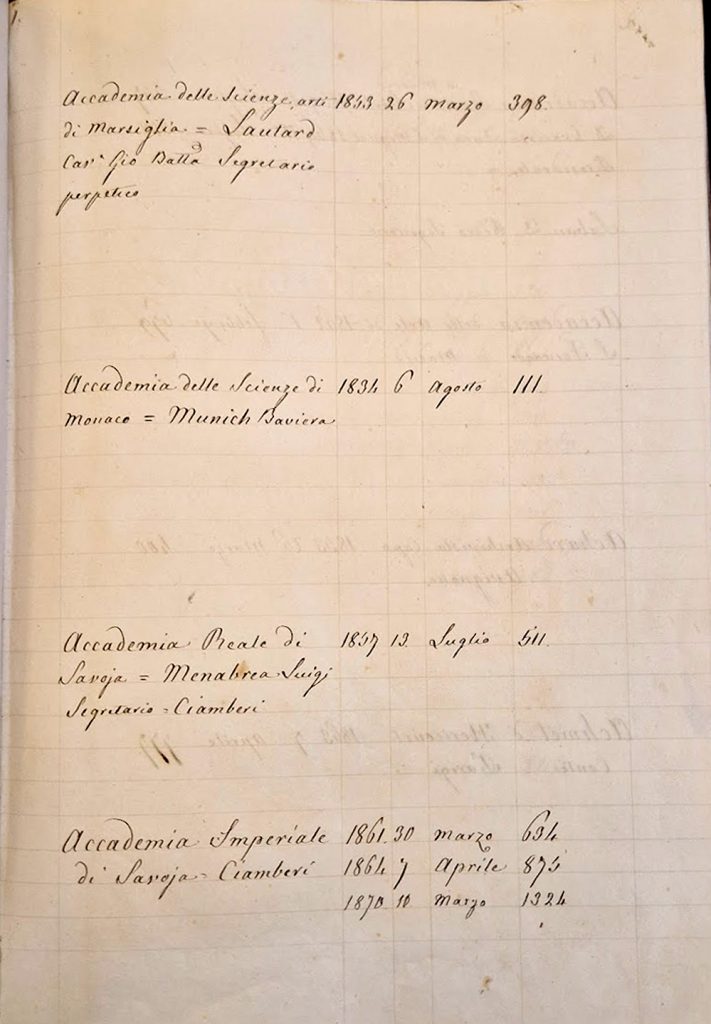 1.
Accademia delle Scienze, arti 1853 26 marzo 398.
di Marsiglia = Lautard
Cav.r Gio Batta Segretario
perpetuo
Accademia delle Scienze di 1834 6 Agosto 111.
Monaco = Munich Baviera
Accademia Reale di 1857 13. Luglio 511.
Savoja = Menabrea Luigi
Segretario = Ciamberi
Accademia Imperiale 1861. 30 marzo 634
di Savoja = Ciamberi 1864 7 Aprile 875
1870. 10 Marzo 1324